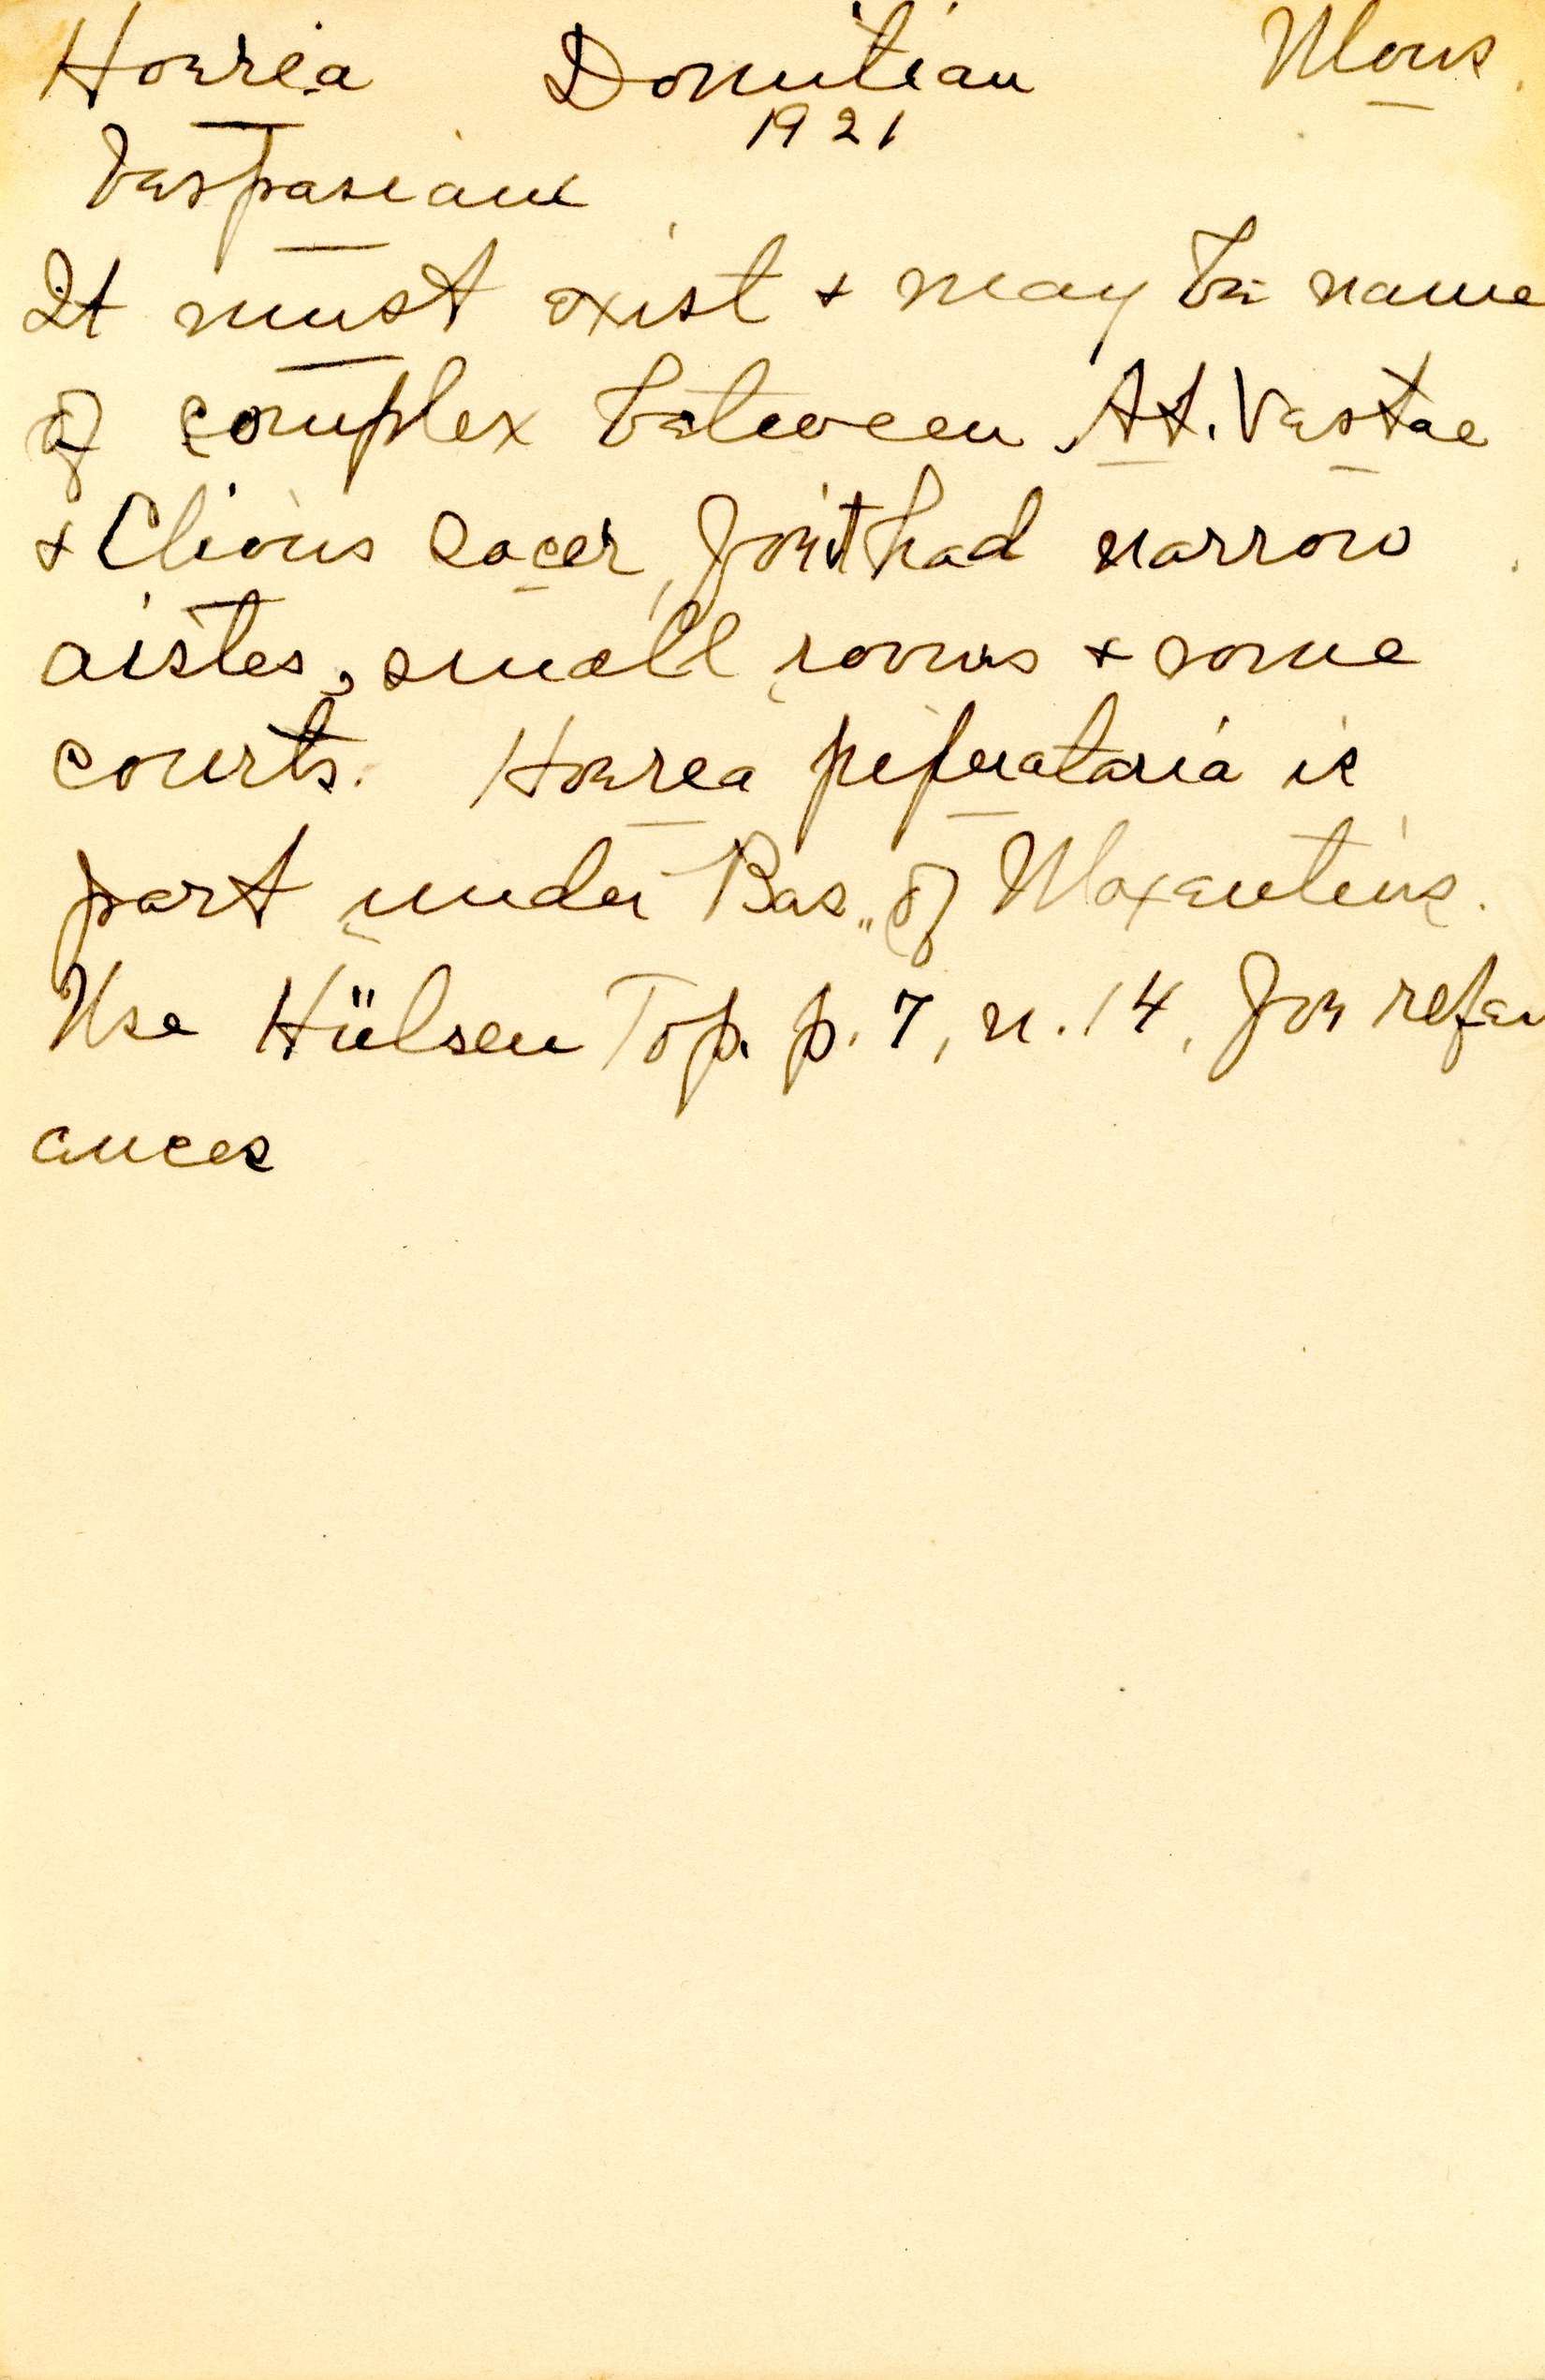 Horrea Domitian Mons.
1921
Vespasiani
It must exist + may be name
of complex between At. Vestae
+ Clivus Sacer, for it had narrow
aisles, small rooms + some
courts. Horrea piperataria is
part under Bas. of Maxentius.
Use Hülsen Top. p. 7, n. 14, for refer
ences